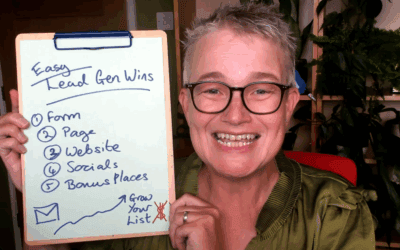 Easy
Lead Gen Wins
1 Form
2 Page
3 Website
4 Socials
5 Bonus Places
Grow
Your
List